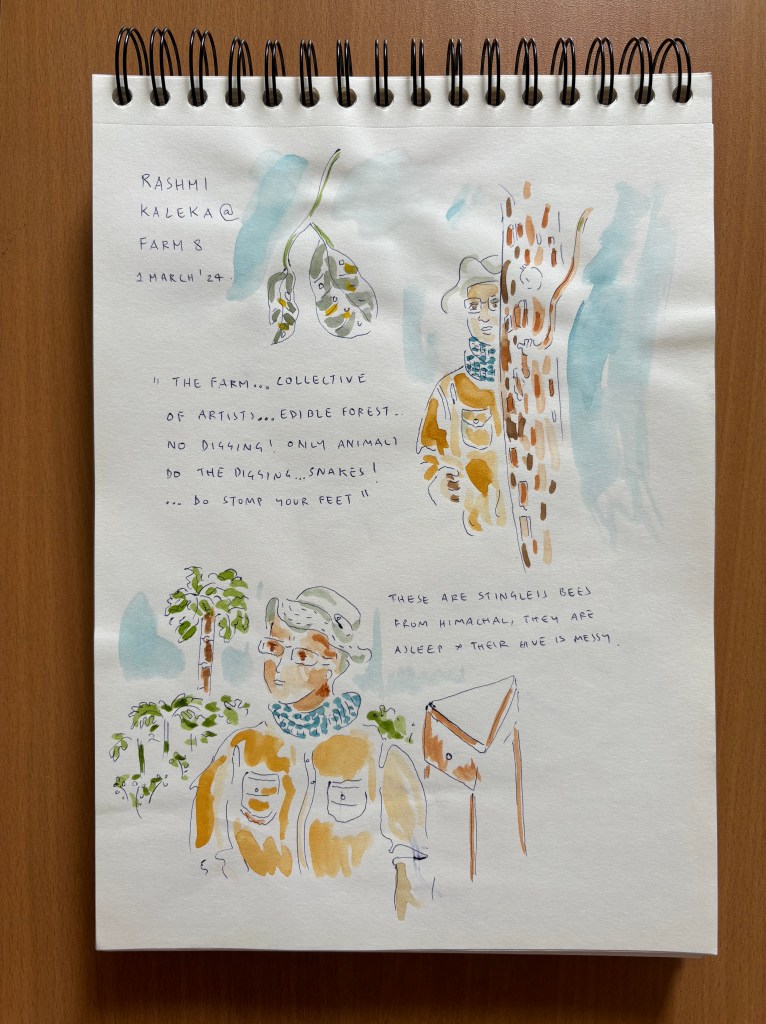 RASHMI
KALEKA @
FARM 8
1 MARCH '24.
" THE FARM... COLLECTIVE
OF ARTISTS... EDIBLE FOREST..
NO DIGGING! ONLY ANIMALS
DO THE DIGGING... SNAKES!
... DO STOMP YOUR FEET "
THESE ARE STINGLESS BEES
FROM HIMACHAL, THEY ARE
ASLEEP & THEIR HIVE IS MESSY.